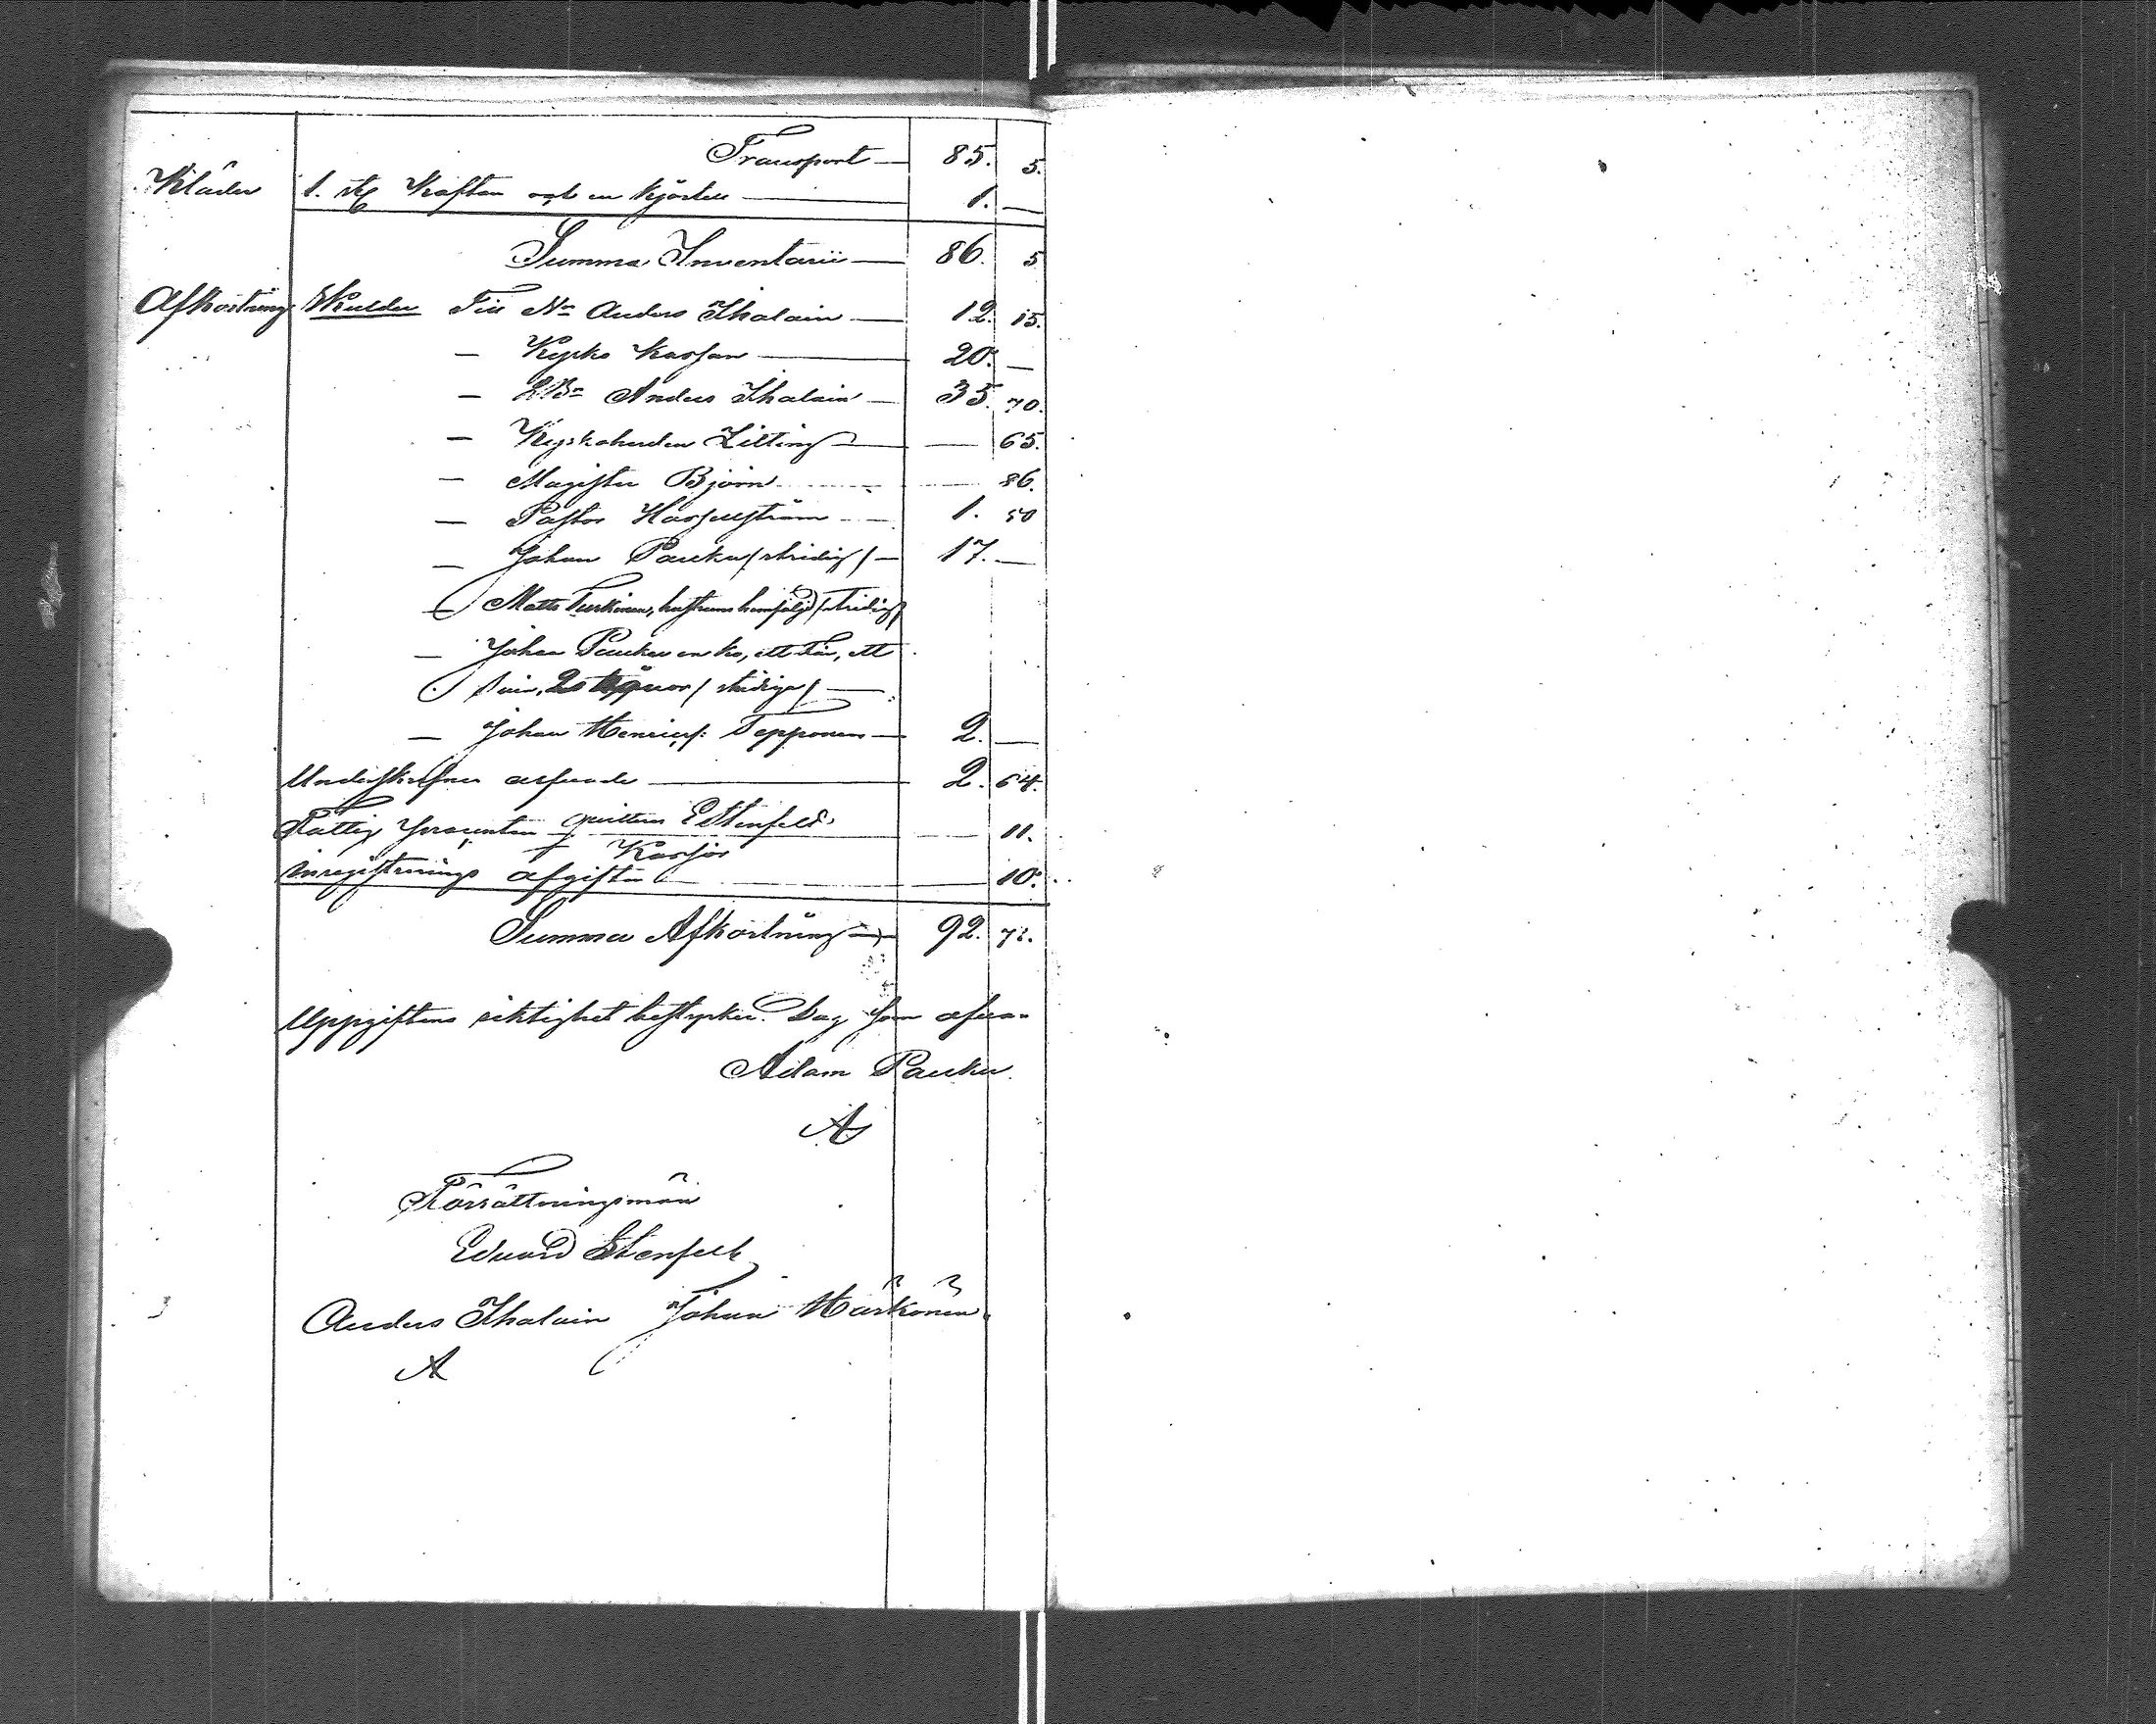 Transport — 85. 5.
Kläder 1. st Kaftan och en kjortel — 1. —
Summa Inventarii — 86. 5
Afkortning Skulder Till Nn Anders Ihalain — 12. 15.
— Kyrko kassan — 20. —
— Anders Ihalain — 35. 70.
— Kyrkoherden Zilting — 65.
— Magister Björn — 86.
— Pastor Hasselström — 1. 50
— Johan Paukku (stridig) — 17. —
— Matts Turkinen, hustruns hemföljd (stridig)
— Johan Paukku en ko, ett får, ett
svin, 20 (stridiga) —
— Johan Henrics: Tepponen — 2. —
Underskrefnes arfvode — 2. 64.
Fattig procenten qvitteras EStenfelt — 11.
Kassör
Inregistrerings afgiften — 10.
Summa Afkortning — 92. 71.
Uppgiftens riktighet bestyrker. Dag som ofvan
Adam Paukku
A
Förrättningsmän
Eduard Stenfelt
Anders Ihalain Johan Härkönen.
A